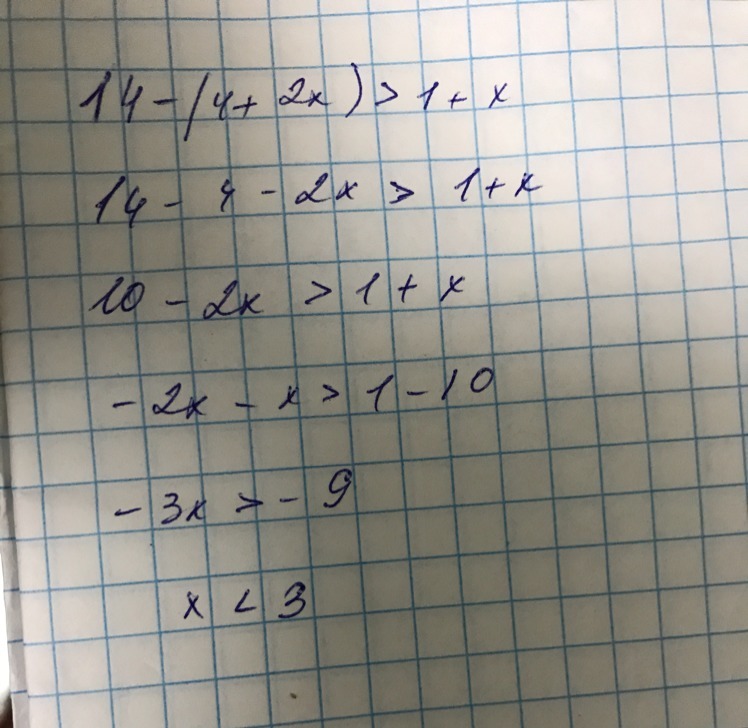 14-(4+2x)>1+x
14-4-2x>1+x
10-2x>1+x
-2x-x>1-10
-3x>-9
x<3